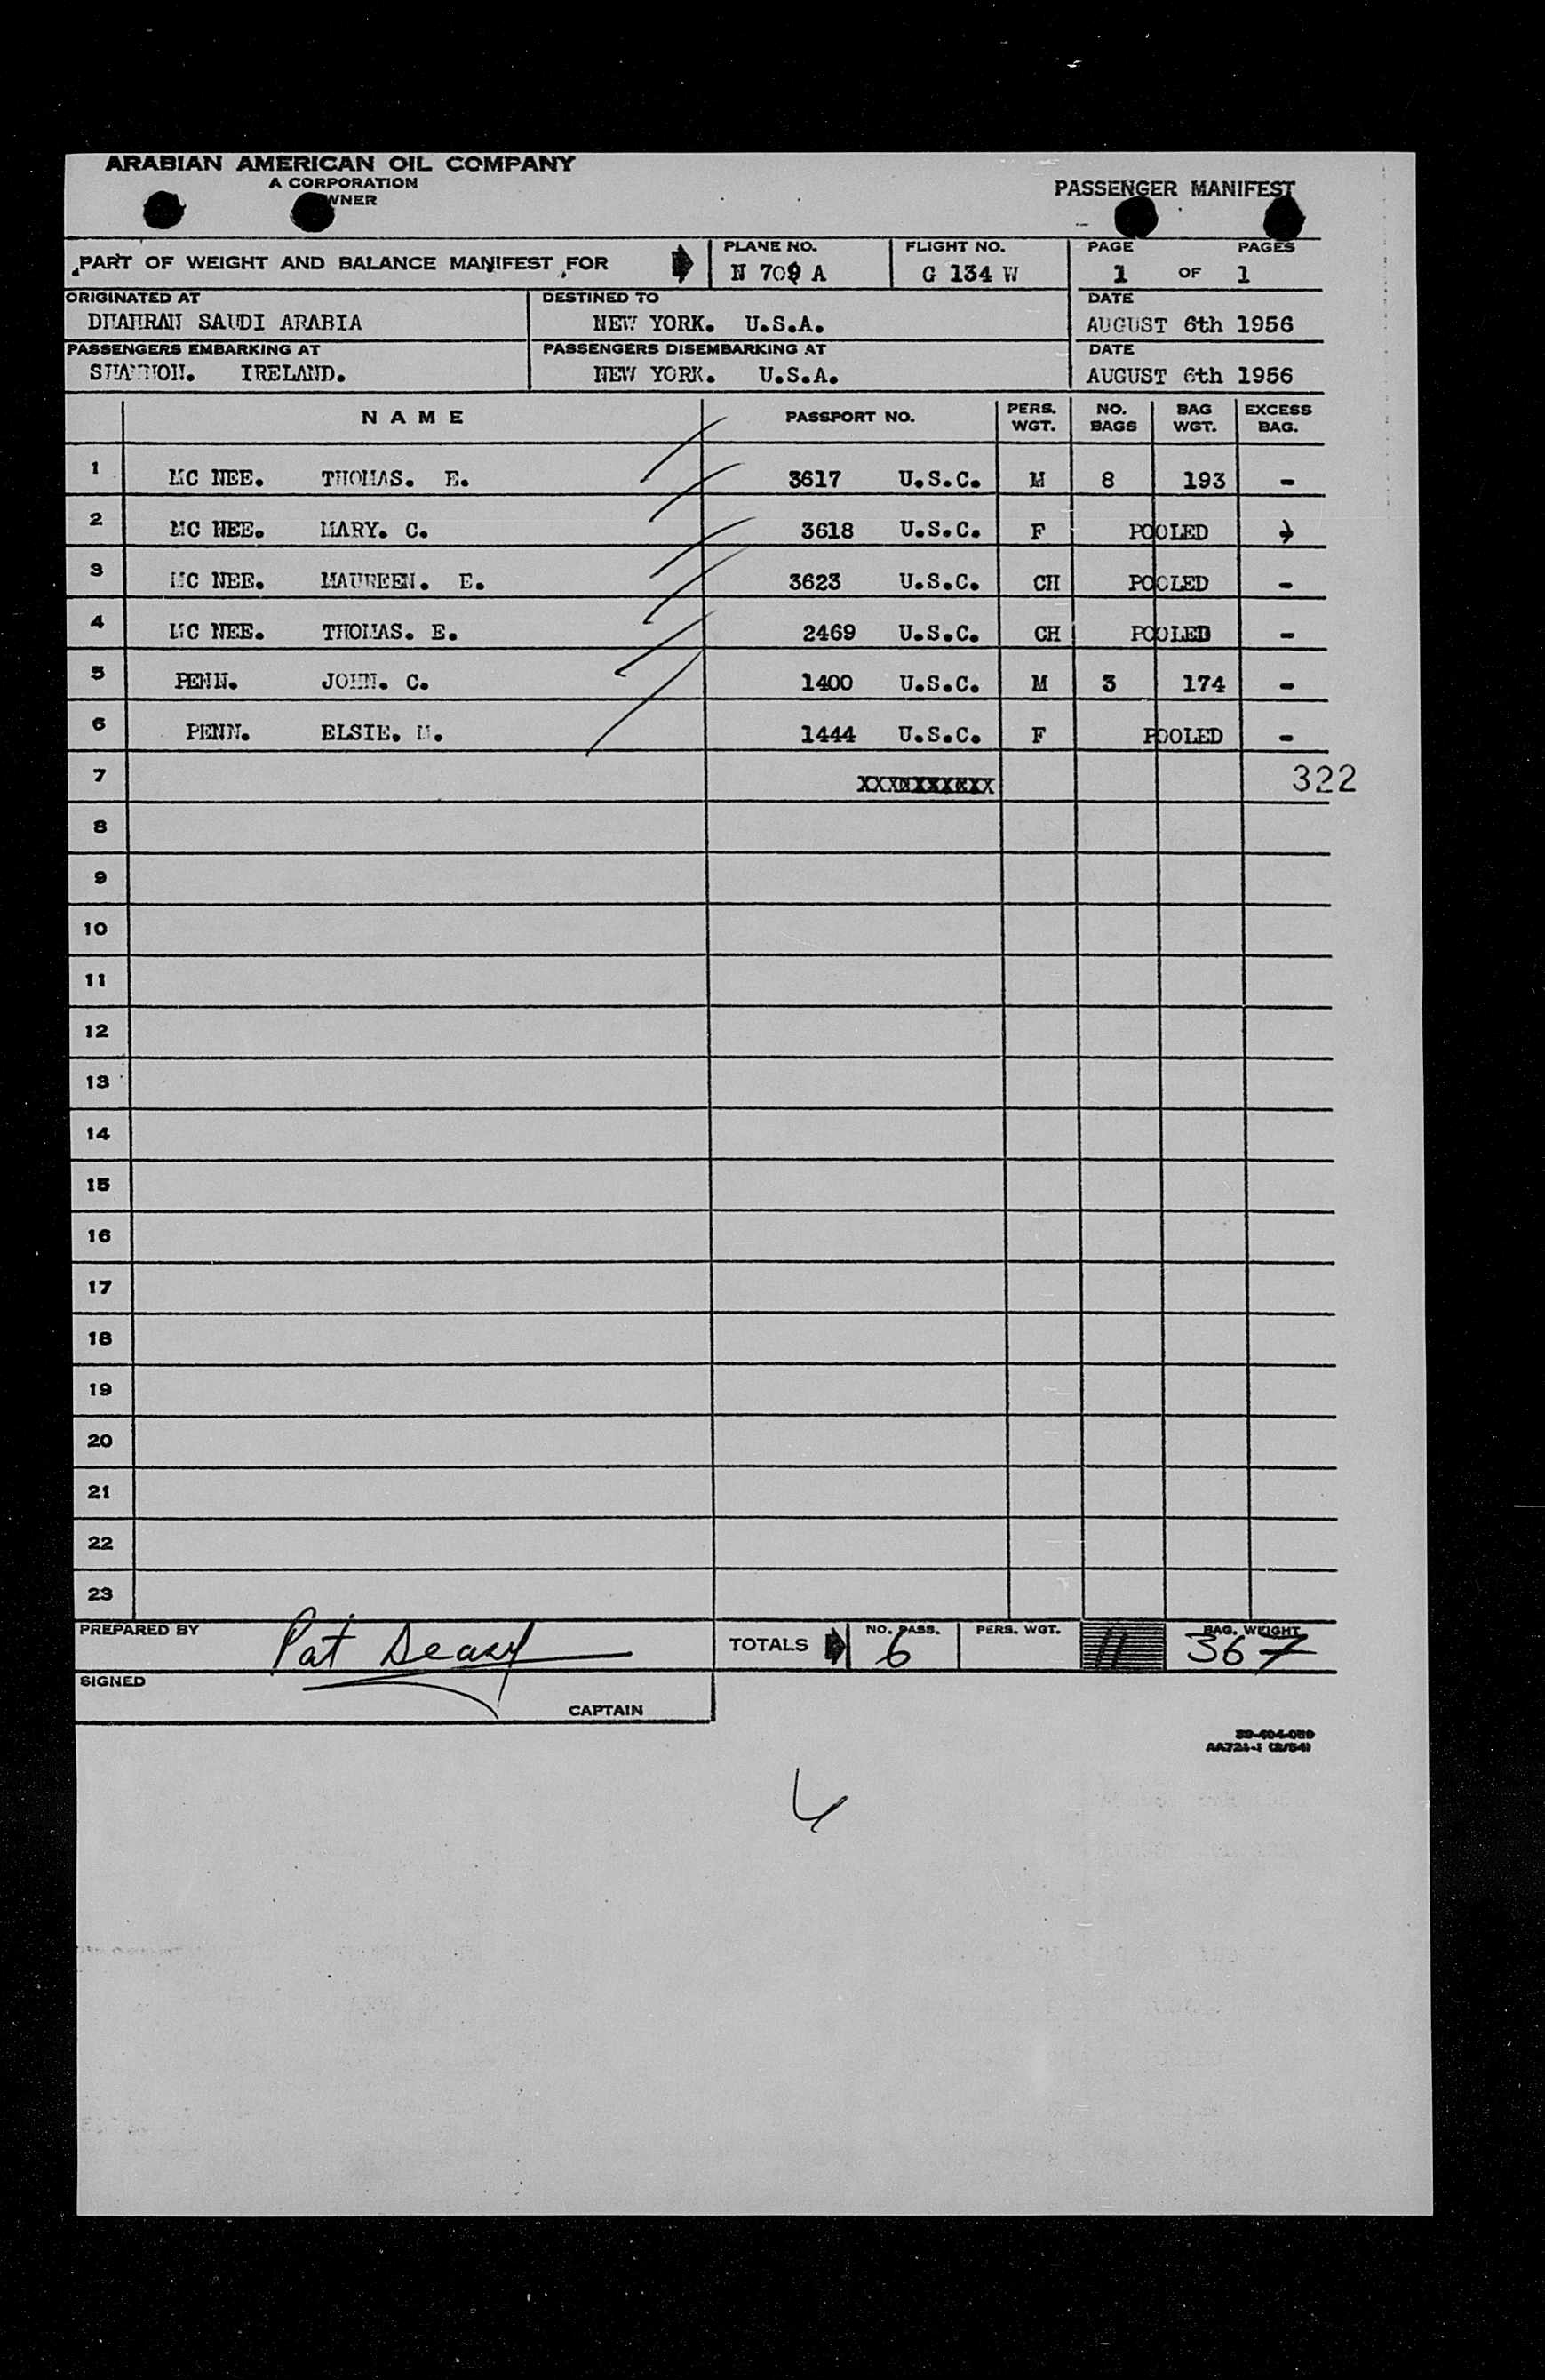 ARABIAN AMERICAN OIL COMPANY
A CORPORATION
WNER
PASSENGER MANIFEST
PART OF WEIGHT AND BALANCE MANIFEST FOR
PLANE NO.
N 709 A
FLIGHT NO.
G 134 W
PAGE PAGES
1 OF 1
ORIGINATED AT
DHAHRAN SAUDI ARABIA
DESTINED TO
NEW YORK. U.S.A.
DATE
AUGUST 6th 1956
PASSENGERS EMBARKING AT
SHANNON. IRELAND.
PASSENGERS DISEMBARKING AT
NEW YORK. U.S.A.
DATE
AUGUST 6th 1956
NAME PASSPORT NO. PERS. WGT. NO. BAGS BAG WGT. EXCESS BAG.
1 MC NEE. THOMAS. E. 3617 U.S.C. M 8 193 -
2 MC NEE. MARY. C. 3618 U.S.C. F POOLED
3 MC NEE. MAUREEN. E. 3623 U.S.C. CH POOLED -
4 MC NEE. THOMAS. E. 2469 U.S.C. CH POOLED -
5 PENN. JOHN. C. 1400 U.S.C. M 3 174 -
6 PENN. ELSIE. M. 1444 U.S.C. F POOLED -
7 322
8
9
10
11
12
13
14
15
16
17
18
19
20
21
22
23
PREPARED BY Pat Deasy
TOTALS NO. PASS. 6 PERS. WGT. 11 BAG. WEIGHT 367
SIGNED
CAPTAIN
AA721-1 (2/54)